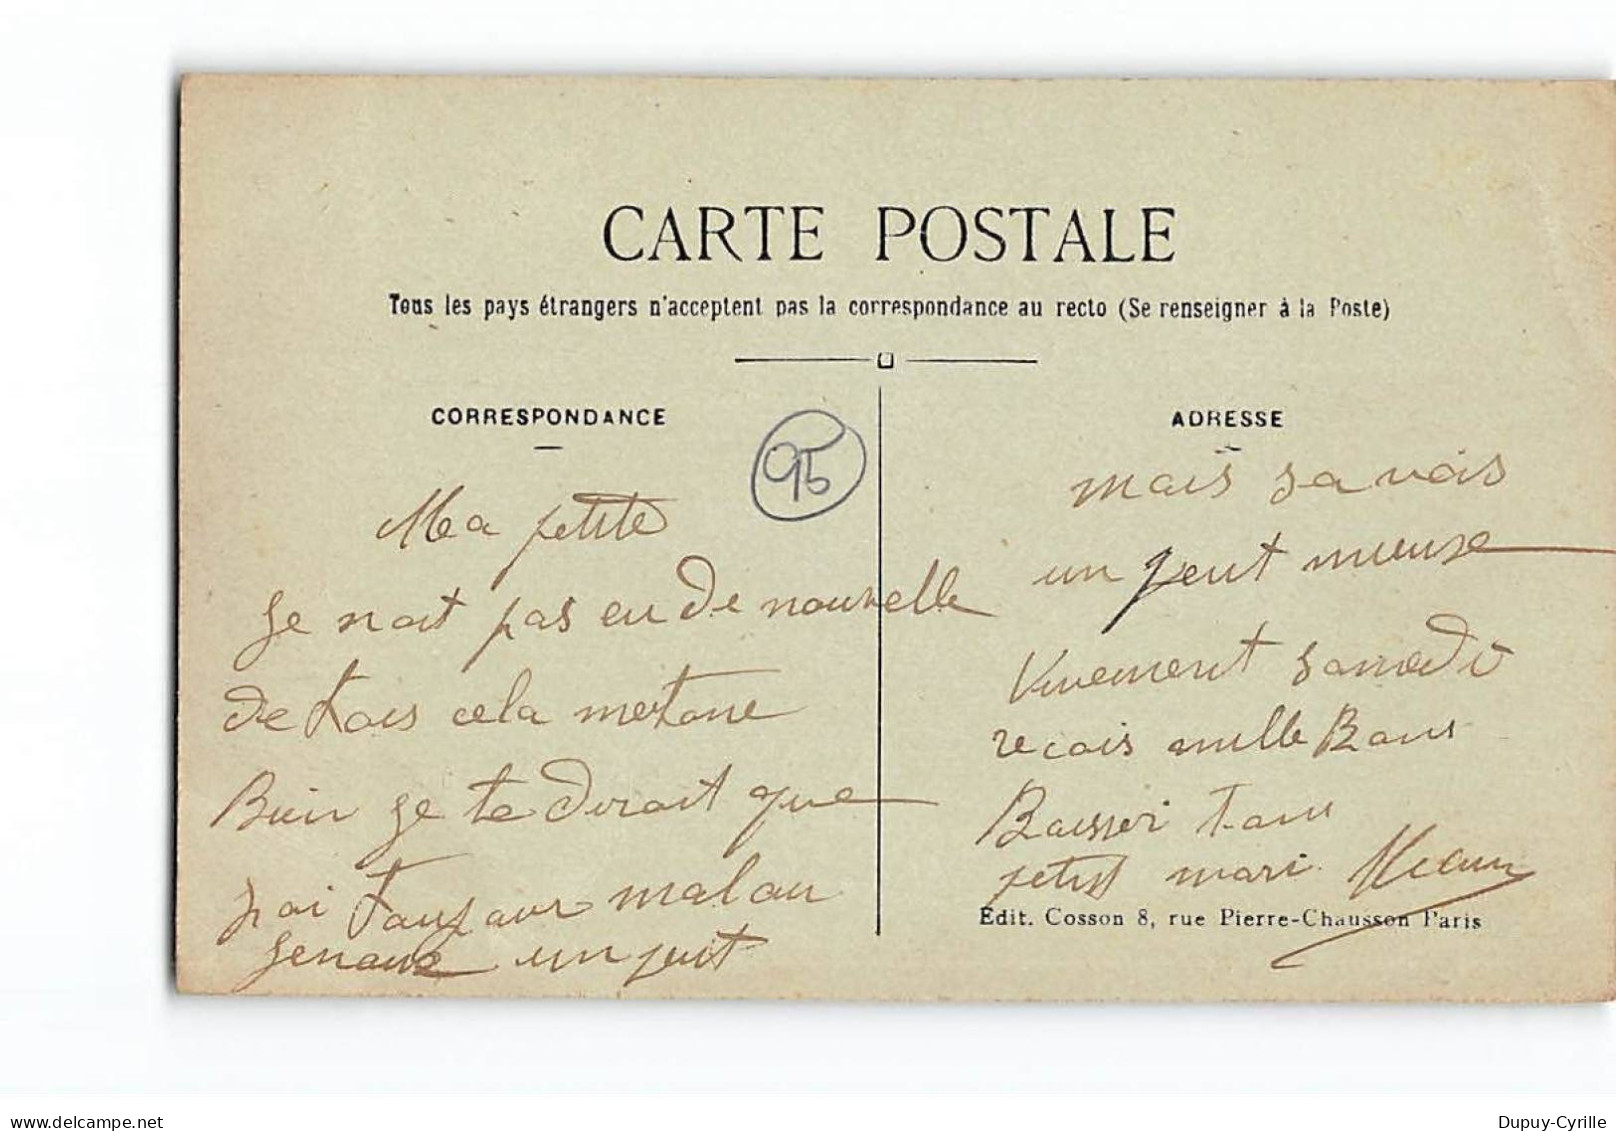 CARTE POSTALE
Tous les pays étrangers n'acceptent pas la correspondance au recto (Se renseigner à la Poste)
CORRESPONDANCE
95
Ma petite
Je nait pas eu de nouvelle
de tois cela metone
Bien je te dirait que
j'ai toujour malau
genoux un peut
ADRESSE
mais sa vois
un peut mieuse
Vivement samedi
recois mille Bons
Baisser ton
petit mari
Edit. Cosson 8, rue Pierre-Chausson Paris
delcampe.net
Dupuy-Cyrille